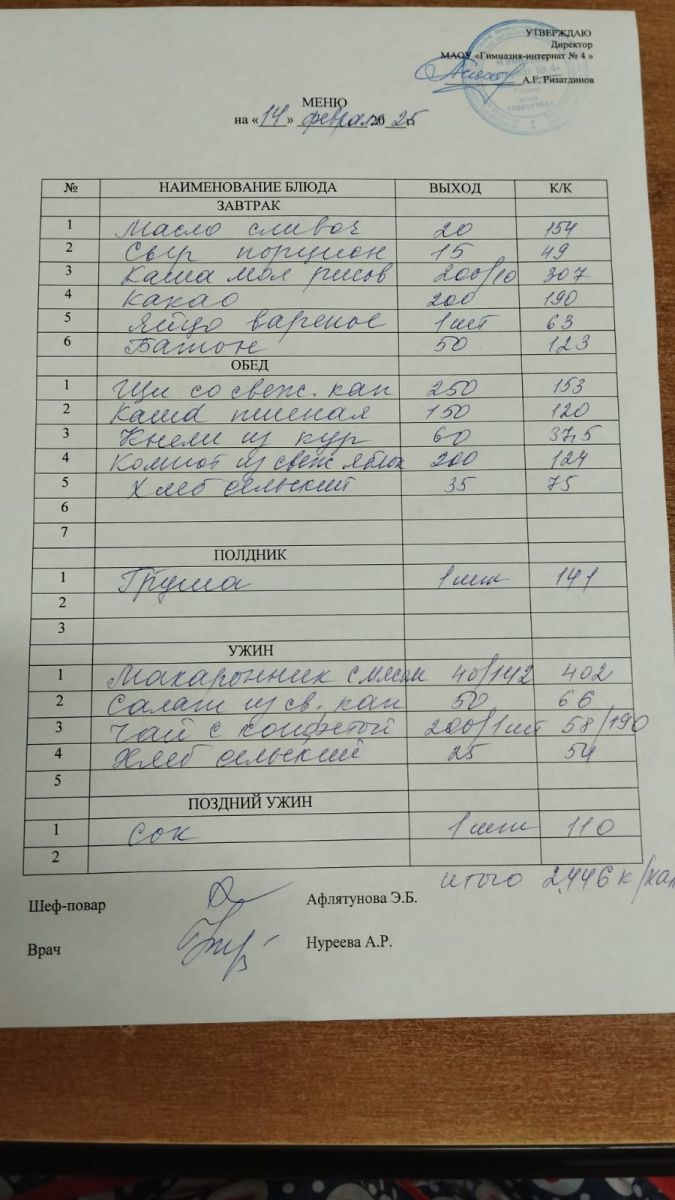 УТВЕРЖДАЮ
Директор
МАОУ «Гимназия-интернат № 4 »
А.Г. Ризатдинов
МЕНЮ
на «14» февраля 2025 г.
№ НАИМЕНОВАНИЕ БЛЮДА ВЫХОД К/К
ЗАВТРАК
1 Масло сливоч 20 154
2 Сыр порцион 15 49
3 Каша мол рисов 200/10 307
4 Какао 200 190
5 Яйцо вареное 1 шт 63
6 Батон 50 123
ОБЕД
1 Щи со свеж. кап 250 153
2 Каша пшеная 150 120
3 Кнели из кур 60 37,5
4 Компот из свеж яблок 200 124
5 Хлеб сельский 35 75
6
7
ПОЛДНИК
1 Груша 1 шт 141
2
3
УЖИН
1 Макаронник с мясом 40/142 402
2 Салат из св. кап 50 66
3 Чай с конфетой 200/1 шт 58/190
4 Хлеб сельский 25 54
5
ПОЗДНИЙ УЖИН
1 Сок 1 шт 110
2
итого 2446 к/кал
Шеф-повар Афлятунова Э.Б.
Врач Нуреева А.Р.